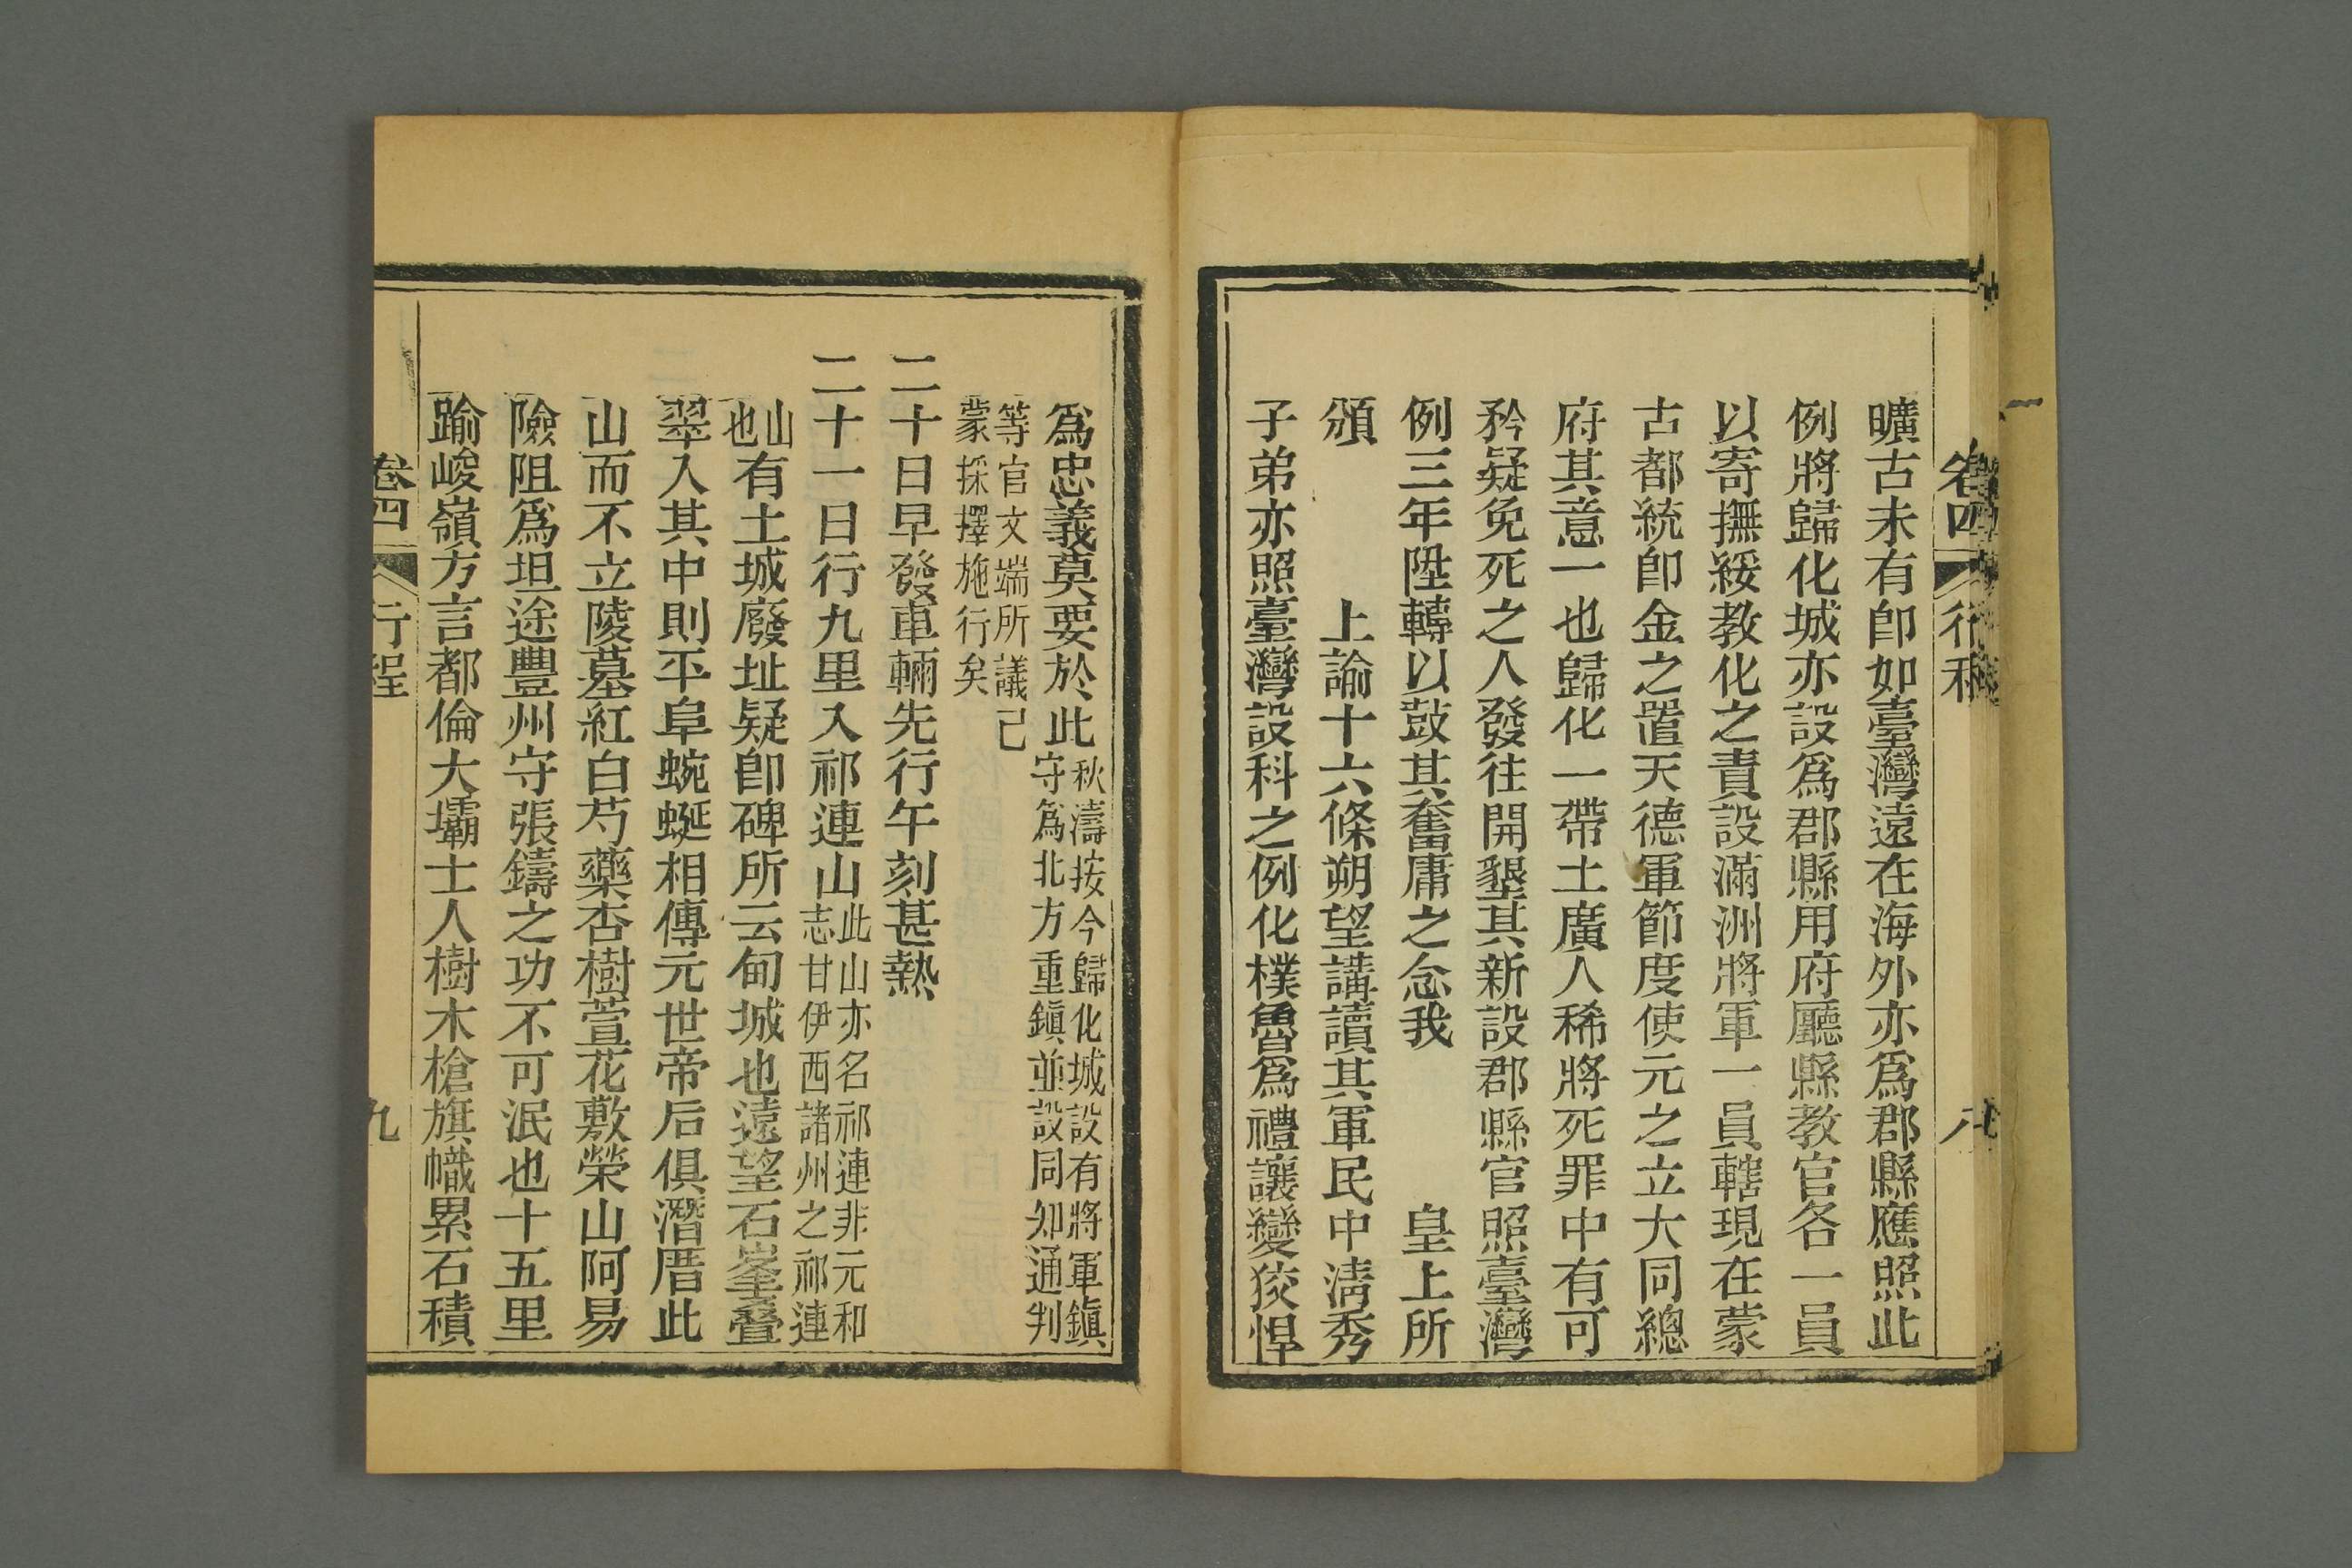 卷四
行程
八
曠古未有卽如臺灣遠在海外亦爲郡縣應照此
例將歸化城亦設爲郡縣用府廳縣教官各一員
以寄撫綏教化之責設滿洲將軍一員轄現在蒙
古都統卽金之置天德軍節度使元之立大同總
府其意一也歸化一帶土廣人稀將死罪中有可
矜疑免死之人發往開墾其新設郡縣官照臺灣
例三年陞轉以鼓其奮庸之念我　皇上所
頒　上諭十六條朔望講讀其軍民中淸秀
子弟亦照臺灣設科之例化樸魯爲禮讓變狡悍
爲忠義莫要於此秋濤按今歸化城設有將軍鎭
守爲北方重鎭並設同知通判
等官文端所議已
蒙採擇施行矣
二十日早發車輛先行午刻甚熱
二十一日行九里入祁連山此山亦名祁連非元和
志甘伊西諸州之祁連
山
也有土城廢址疑卽碑所云甸城也遠望石峯叠
翠入其中則平阜蜿蜒相傳元世帝后俱潛厝此
山而不立陵墓紅白芍藥杏樹萱花敷榮山阿易
險阻爲坦途豐州守張鑄之功不可泯也十五里
踰峻嶺方言都倫大壩士人樹木槍旗幟累石積
卷四
行程
九